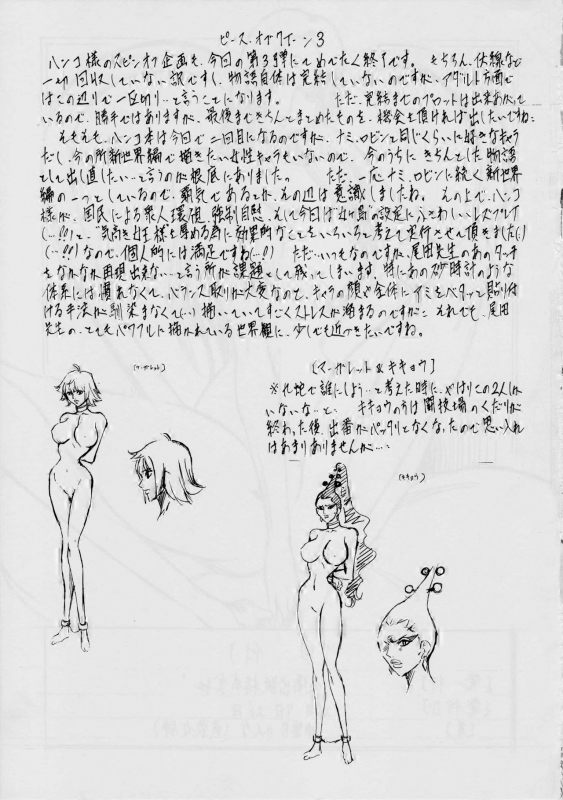 ピース・オブ・クイーン 3
ハンコ様のスピンオフ企画も、今回の第3弾にてめでたく終了です。 もちろん、伏線など
一切回収していない訳ですし、物語自体は完結していないのですが、アダルト方面で
はこの辺りで一区切り…と言うことになります。 ただ、完結までのプロットは出来あがって
いるので、勝手ではありますが、最後まできちんとまとめたものを、機会を頂ければ出したいですね
そもそも、ハンコ本は今回で二回目になるのですが、ナミ、ロビンと同じくらいに好きなキャラ
だし、今の所新世界編で描きたい女性キャラもいないので、今のうちにきちんとした物語
として出し直したい…と言うのが根底にありました。 ただ、一応ナミ、ロビンに続く新世界
編の一つとしているので、覇気であるとか、その辺は意識しましたね。その上で、ハンコ
様が、国民による衆人環視、強制自慰、そして今回は
(…!!)と、"気高き女王様"を辱める為に効果的なことをいちいち考えて実行させて頂きました
(…!!)なので、個人的には満足ですね(…!) ただ…いつもなのですが、尾田先生のあのタッチ
をなかなか再現出来ない…と言う所が課題として残ってしまいます。特にあの砂時計のような
体系には慣れなくて、バランス取りが大変なのと、キャラの顔や全体にアミをベタッと貼り付
ける手法が馴染まなくて 描いていてすごくストレスが溜まるのですが それでも、尾田
先生の、とてもパワフルに描かれている世界観に、少しでも近づきたいですね。
[マーガレット&キキョウ]
※九蛇で誰にしよう…と考えた時に、やはりこの2人しか
いないな…と、 キキョウの方は闘技場のくだりが
終わった後、出番がパッタリとなくなったので思い入れ
はあまりありませんが…
[マーガレット]
[キキョウ]